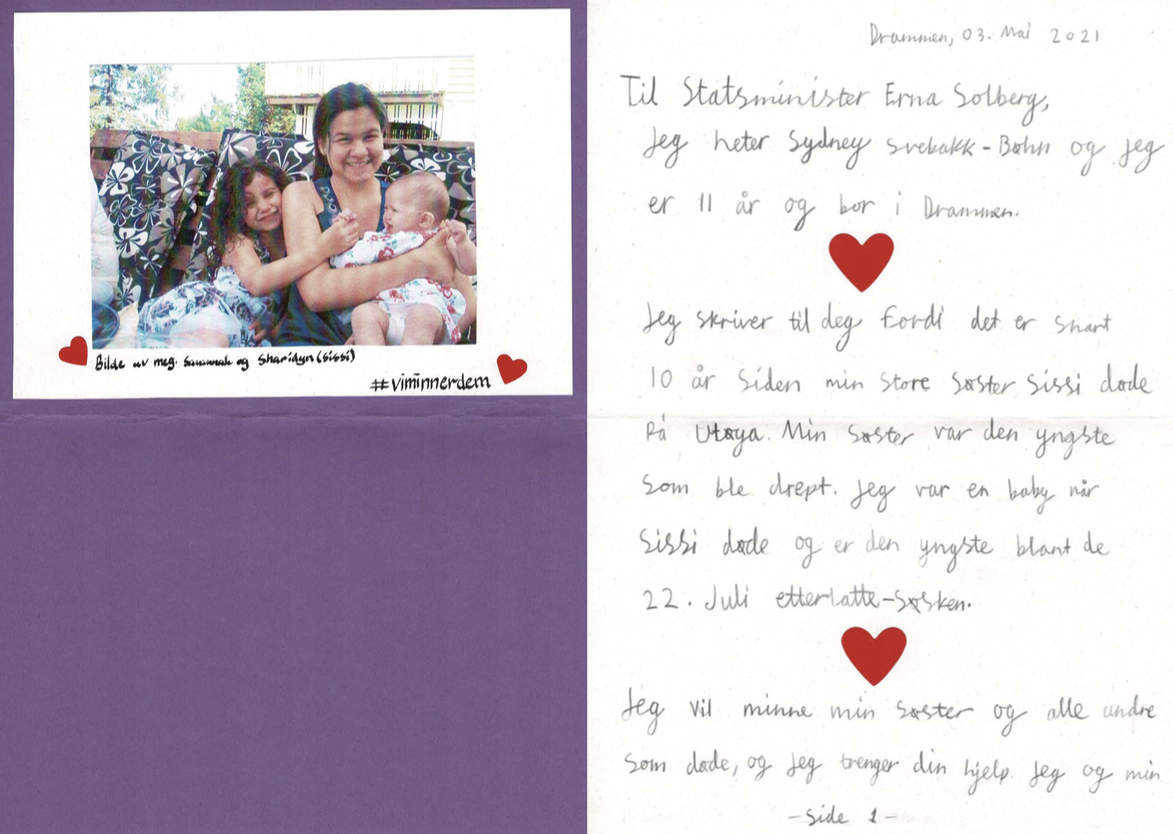 Bilde av meg. Savannah og Sharidyn (Sissi)
#viminnerdem
Drammen, 03. Mai 2021
Til Statsminister Erna Solberg,
Jeg heter Sydney Svebakk-Bøhn og jeg
er 11 år og bor i Drammen.
Jeg skriver til deg fordi det er snart
10 år siden min store søster Sissi døde
På Utøya. Min søster var den yngste
som ble drept. Jeg var en baby når
Sissi døde og er den yngste blant de
22. Juli etterlatte-søsken.
Jeg vil minne min søster og alle andre
som døde, og jeg trenger din hjelp. Jeg og min
-Side 1-